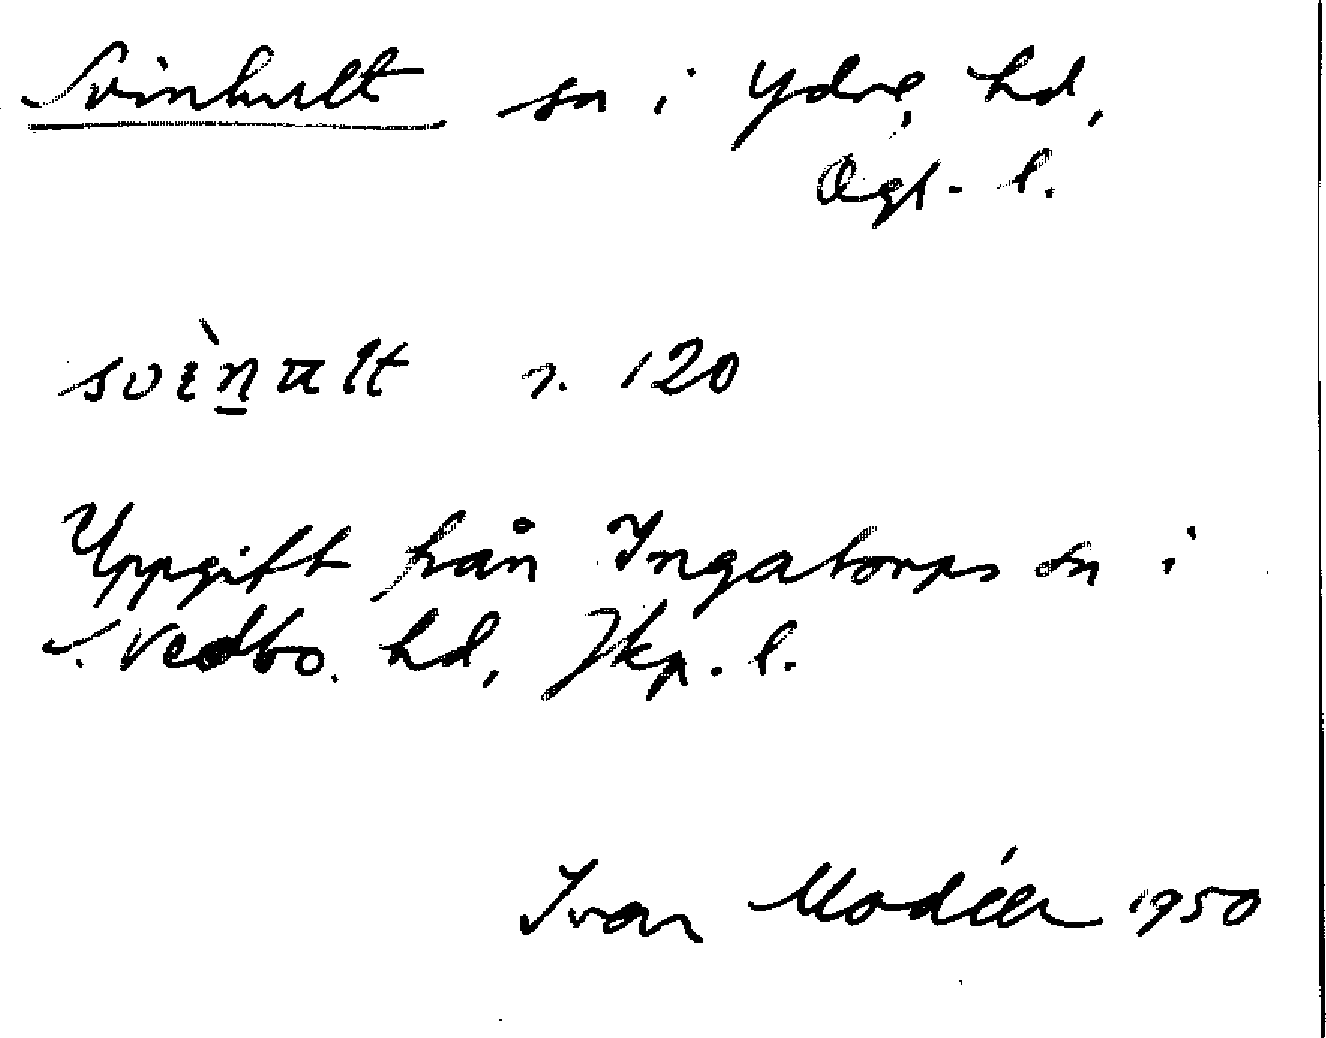 Svinhult sn i Ydre hd,
Ögl. l.
s. 120
Uppgift från Ingatorps sn i
S. Vedbo hd, Jkp. l.
Ivar Modéer 1950